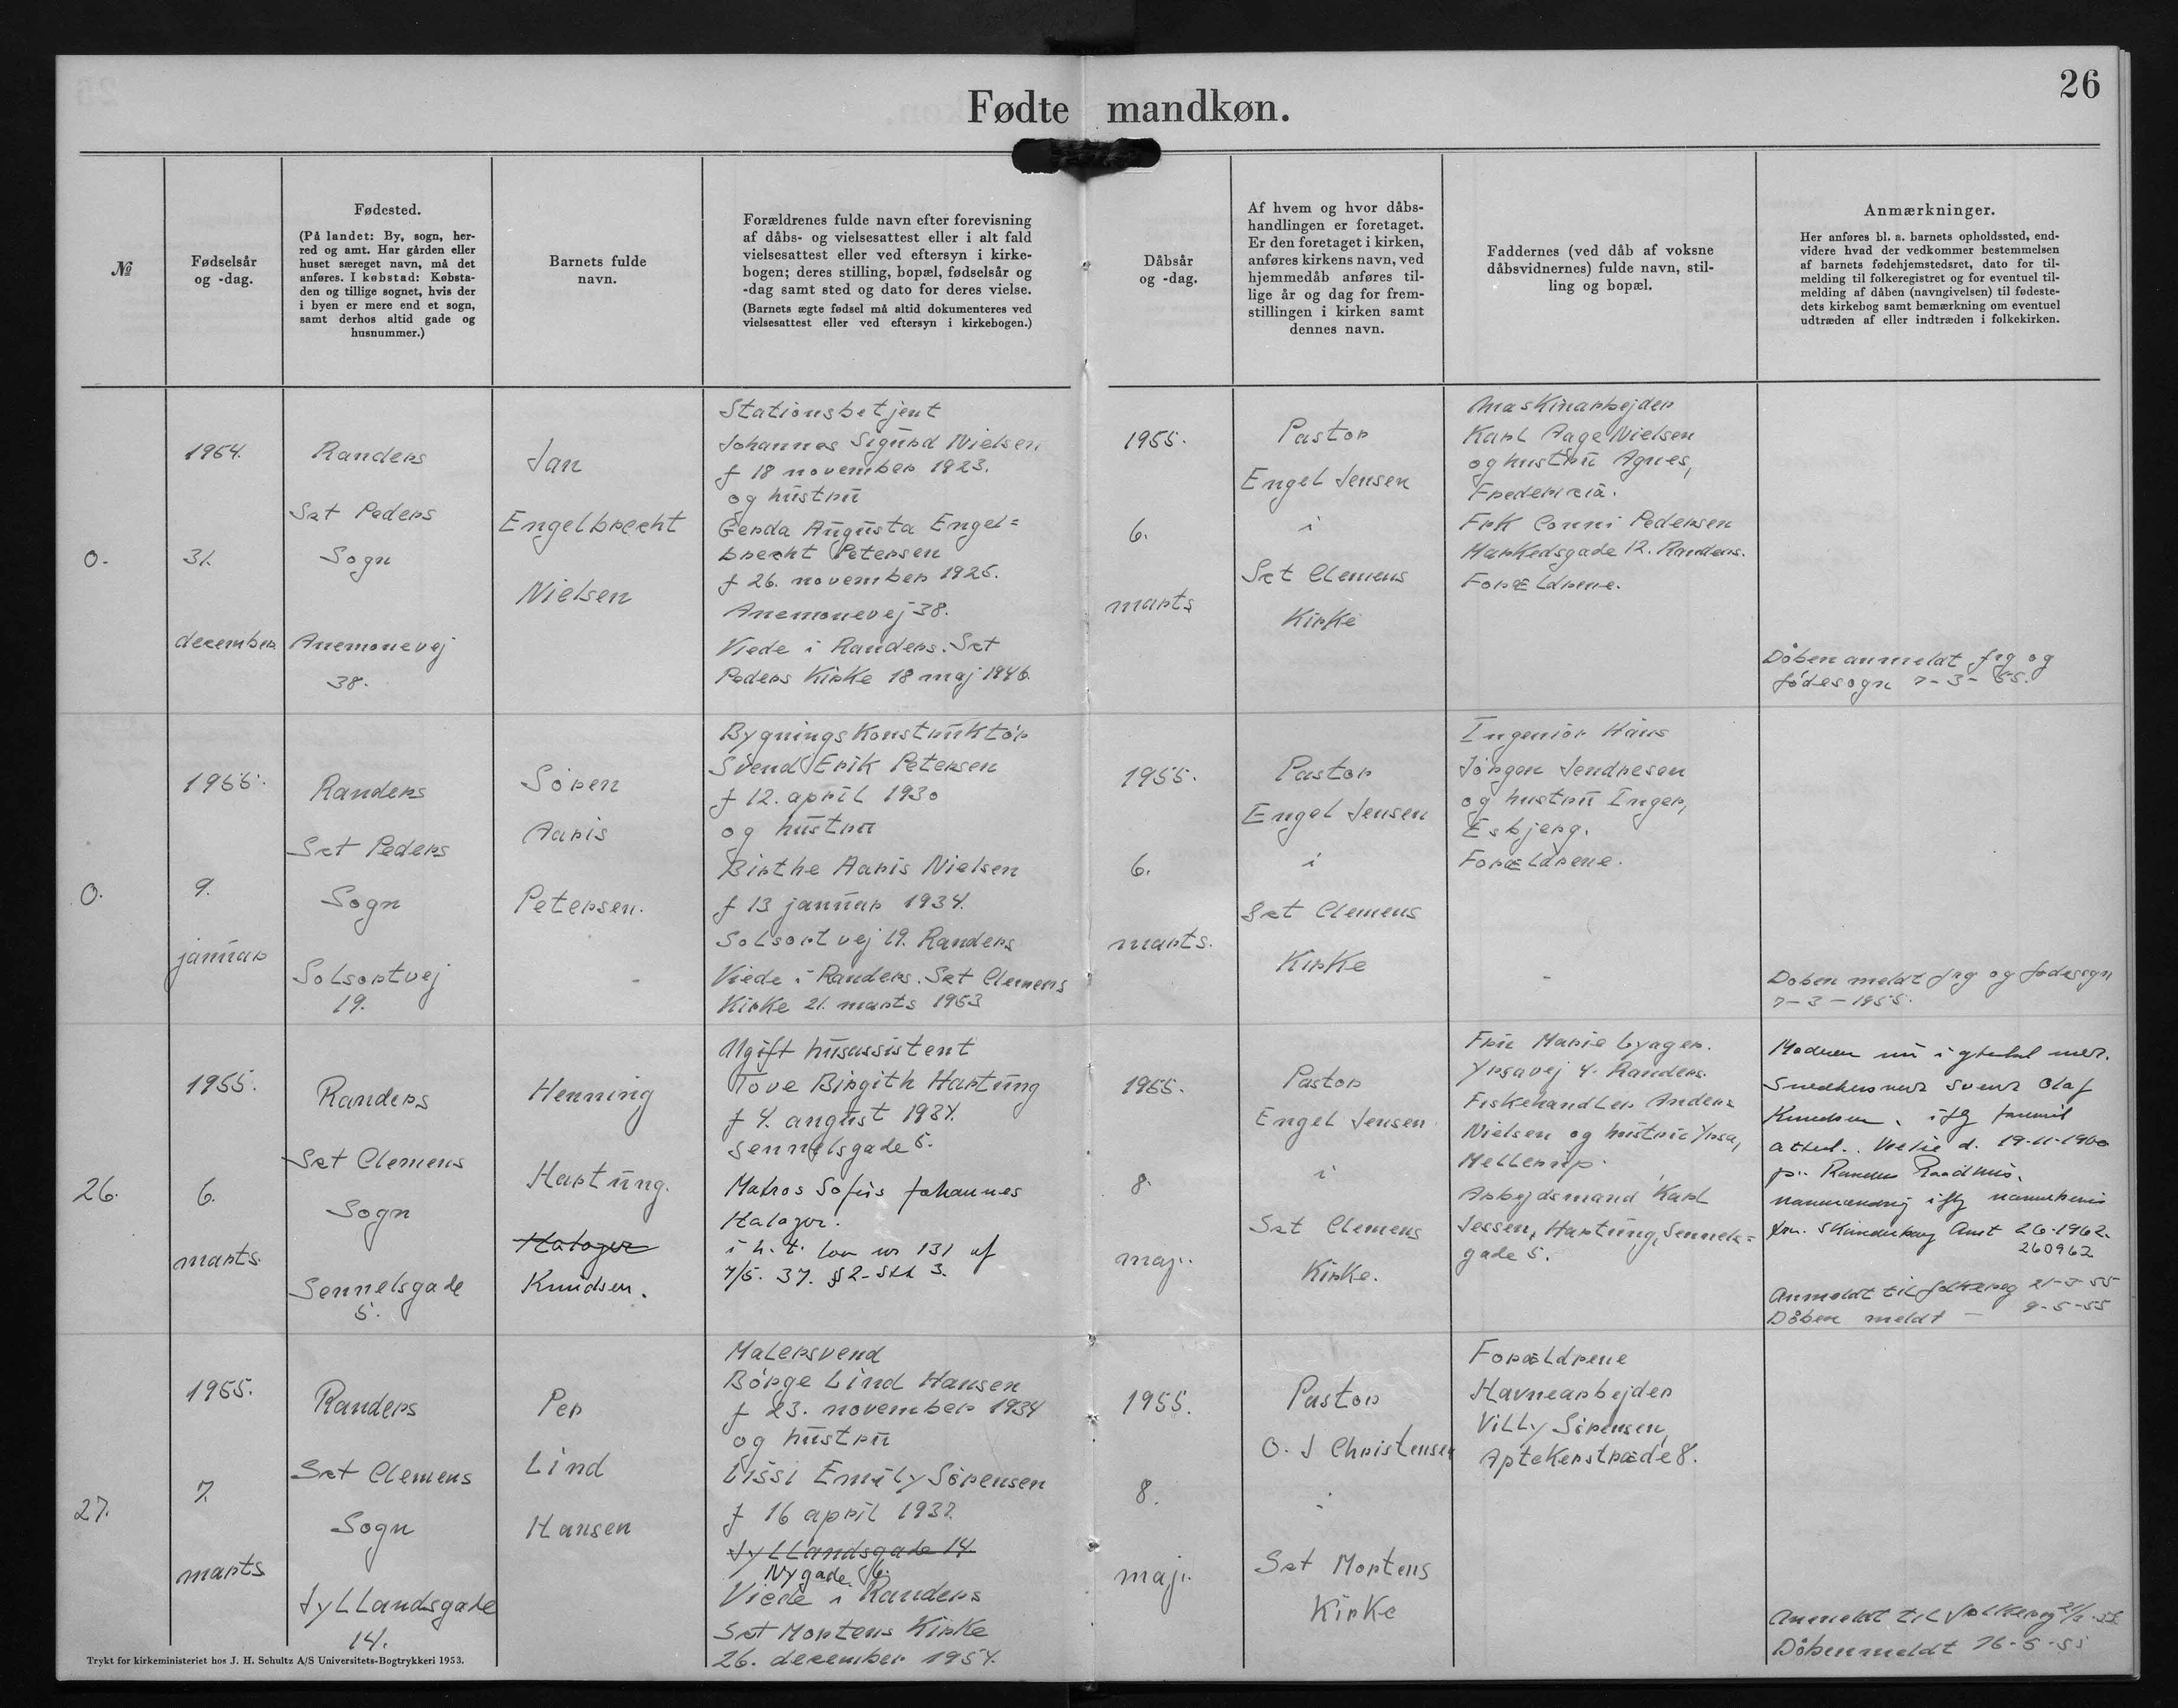 26
Fødte mandkøn.
№
Fødselsår
og -dag.
Fødested.
(På landet: By, sogn, her-
red og amt. Har gården eller
huset særeget navn, må det
anføres. I købstad: Købsta-
den og tillige sognet, hvis der
i byen er mere end et sogn,
samt derhos altid gade og
husnummer.)
Barnets fulde
navn.
Forældrenes fulde navn efter forevisning
af dåbs- og vielsesattest eller i alt fald
vielsesattest eller ved eftersyn i kirke-
bogen; deres stilling, bopæl, fødselsår og
-dag samt sted og dato for deres vielse.
(Barnets ægte fødsel må altid dokumenteres ved
vielsesattest eller ved eftersyn i kirkebogen.)
Dåbsår
og -dag.
Af hvem og hvor dåbs-
handlingen er foretaget.
Er den foretaget i kirken,
anføres kirkens navn, ved
hjemmedåb anføres til-
lige år og dag for frem-
stillingen i kirken samt
dennes navn.
Faddernes (ved dåb af voksne
dåbsvidnernes) fulde navn, stil-
ling og bopæl.
Anmærkninger.
Her anføres bl. a. barnets opholdssted, end-
videre hvad der vedkommer bestemmelsen
af barnets fødehjemstedsret, dato for til-
melding til folkeregistret og for eventuel til-
melding af dåben (navngivelsen) til fødeste-
dets kirkebog samt bemærkning om eventuel
udtræden af eller indtræden i folkekirken.
0.
1954.
31.
december
Randers
Sct Peders
Sogn
Anemonevej
38.
Jan
Engelbrecht
Nielsen
Stationsbetjent
Johannes Sigurd Nielsen
f 18 november 1923.
og hustru
Gerda Augusta Engel=
brecht Petersen
f 26. november 1925.
Anemonevej 38.
Viede i Randers. Sct
Peders Kirke 18 maj 1946.
1955.
6.
marts
Pastor
Engel Jensen
i
Sct Clemens
Kirke
Maskinarbejder
Karl Aage Nielsen
og hustru Agnes,
Fredericia.
Frk Conni Pedersen
Markedsgade 12. Randers.
Forældrene.
Dåben anmeldt frg og
fødesogn 7-3-55.
0.
1955.
9.
januar
Randers
Sct Peders
Sogn
Solsortvej
19.
Sören
Aaris
Petersen.
Bygningskonstruktör
Svend Erik Petersen
f 12. april 1930
og hustru
Birthe Aaris Nielsen
f 13 januar 1934.
Solsortvej 19. Randers
Viede i Randers. Sct Clemens
Kirke 21. marts 1953
1955.
6.
marts.
Pastor
Engel Jensen
i
Sct Clemens
Kirke
Ingeniör Hans
Jörgen Jendresen
og hustru Inger,
Esbjerg.
Forældrene.
Dåben meldt frg og fødesogn
7-3-1955.
26.
1955.
6.
marts
Randers
Sct Clemens
Sogn
Sennelsgade
5.
Henning
Hartung.
Halager
Knudsen.
Ugift husassistent
Tove Birgith Hartung
f 4. august 1934.
Sennelsgade 5.
Matros Sofus Johannes
Halager.
i h. t. lov nr 131 af
7/5. 37. § 2 - Stk 3.
1955.
8.
maj.
Pastor
Engel Jensen
i
Sct Clemens
Kirke.
Fru Marie Lyager.
Yrsavej 4. Randers.
Fiskehandler Anders
Nielsen og hustru Yrsa,
Mellerup.
Arbejdsmand Karl
Jessen, Hartung, Sennels=
gade 5.
Moderen nu i med.
Svend Olaf
Knudsen. iflg
attest. Viet d. 19-11-1960
på Randers Raadhus.
iflg
Skanderborg Amt 26-1962.
260962
Anmeldt til folkereg 21-3-55
Dåben meldt — 9-5-55
27.
1955.
7.
marts
Randers
Sct Clemens
Sogn
Jyllandsgade
14.
Per
Lind
Hansen
Malersvend
Börge Lind Hansen
f 23. november 1934
og hustru
Lissi Emily Sörensen
f 16 april 1937.
Jyllandsgade 14.
Nygade 6.
Viede i Randers
Sct Mortens Kirke
26. december 1954.
1955.
8.
maj.
Pastor
O. J Christensen
i
Sct Mortens
Kirke
Forældrene
Havnearbejder
Villy Sörensen,
Aptekerstræde 8.
Anmeldt til folkereg 21/3-55
Dåben meldt 16-5-55
Trykt for kirkeministeriet hos J. H. Schultz A/S Universitets-Bogtrykkeri 1953.